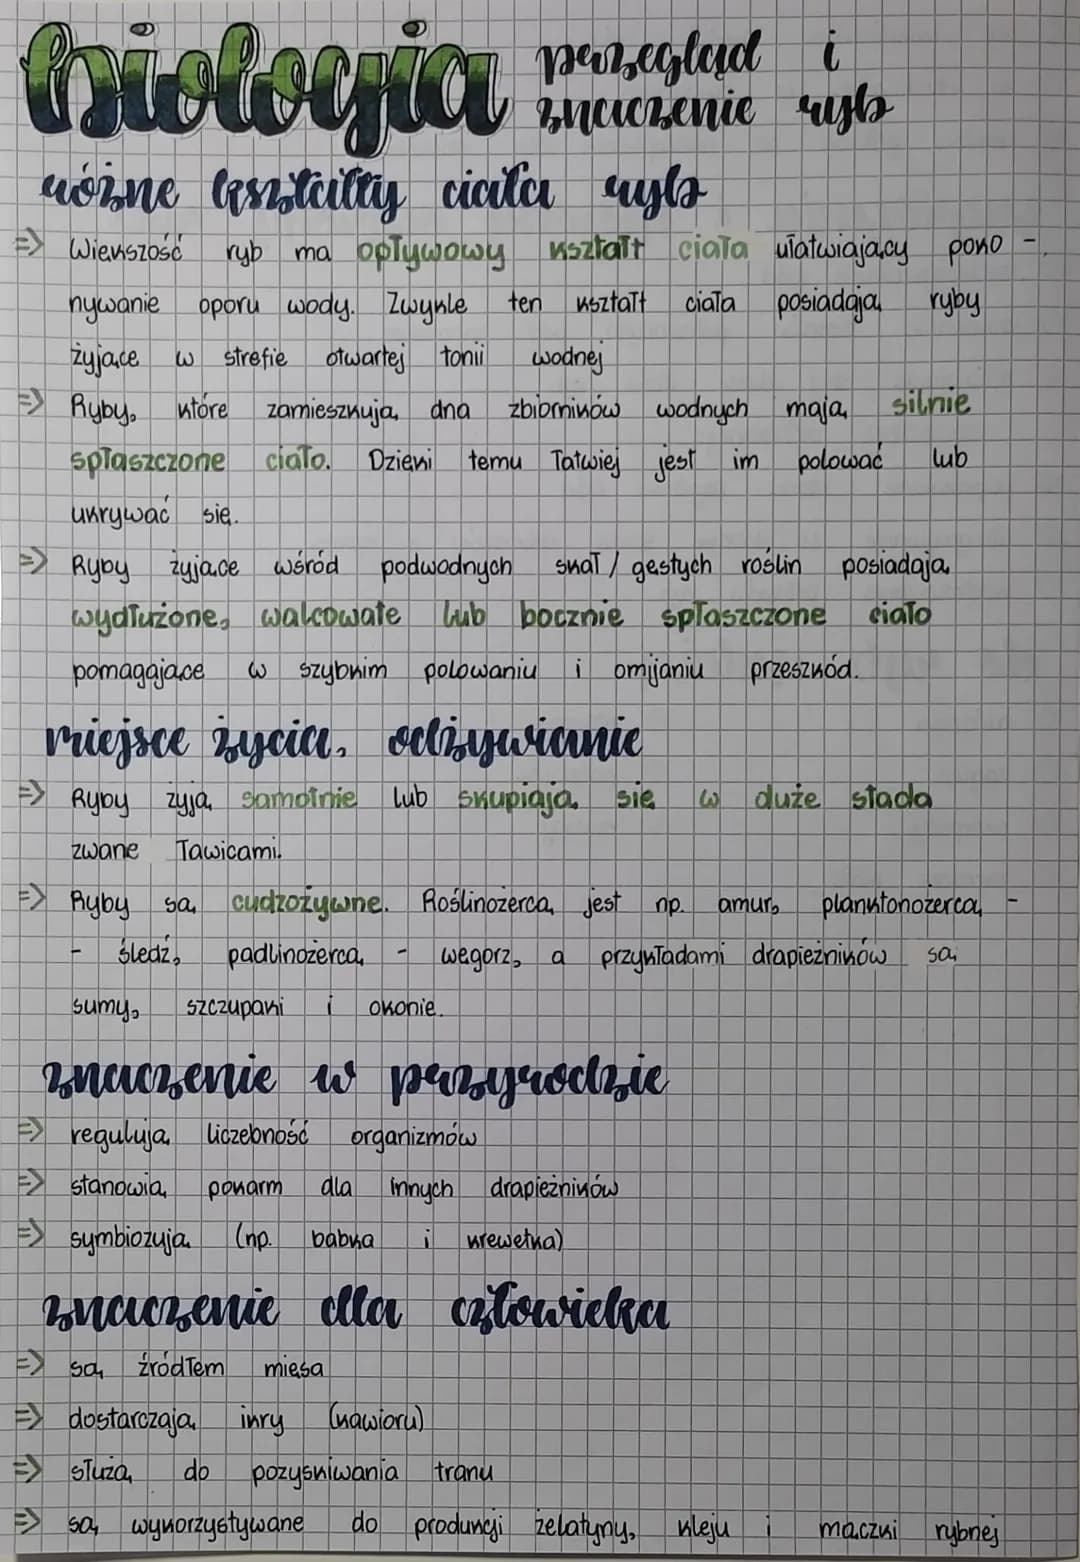 biologia przegląd i
znaczenie ryb
różne kształty ciała ryb
=> Większość ryb ma opływowy kształt ciała ułatwiający poko -
nywanie oporu wody. Zwykle ten kształt ciała posiadają ryby
żyjące w strefie otwartej tonii wodnej
=> Ryby, które zamieszkują dna zbiorników wodnych mają silnie
spłaszczone ciało. Dzięki temu łatwiej jest im polować lub
ukrywać się.
=> Ryby żyjące wśród podwodnych skał / gęstych roślin posiadają
wydłużone, walcowate lub bocznie spłaszczone ciało
pomagające w szybkim polowaniu i omijaniu przeszkód.
miejsce życia, odżywianie
=> Ryby żyją samotnie lub skupiają się w duże stada
zwane ławicami.
=> Ryby są cudzożywne. Roślinożercą jest np. amur, planktonożercą -
- śledź, padlinożercą - węgorz, a przykładami drapieżników są
sumy, szczupaki i okonie.
znaczenie w przyrodzie
=> regulują liczebność organizmów
=> stanowią pokarm dla innych drapieżników
=> symbiozują (np. babka i krewetka)
znaczenie dla człowieka
=> są źródłem mięsa
=> dostarczają ikry (kawioru)
=> służą do pozyskiwania tranu
=> są wykorzystywane do produkcji żelatyny, kleju i mączki rybnej